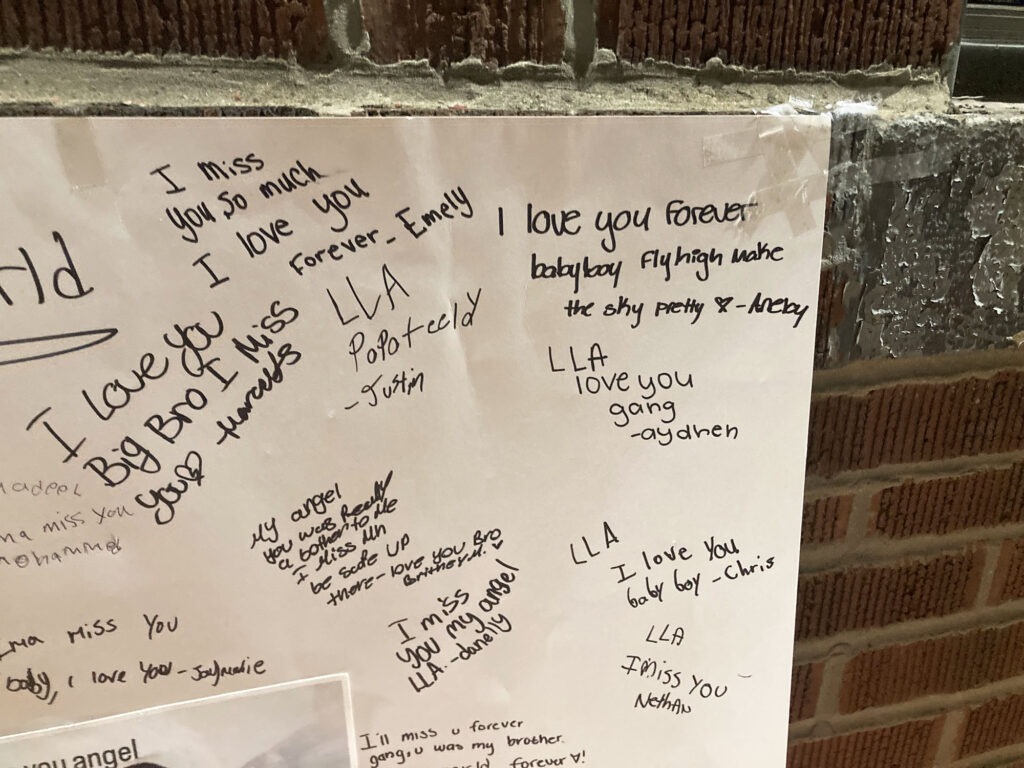 I miss
you so much
I love you
Forever - Emely
rld
I love you
Big Bro I Miss
you
LLA
-Justin
I love you Forever
babyboy Fly high make
the sky pretty
LLA
love you
gang
-aydren
miss you
My angel
you was Really
a bother to Me
I Miss
be safe UP
there - love you Bro
I miss
you my angel
LLA. -danelly
LLA
I love You
baby boy - Chris
LLA
I miss you
Nathan
Ima miss You
baby, i love you - Jaymarie
you angel
I'll miss u forever
gang, u was my brother.
forever